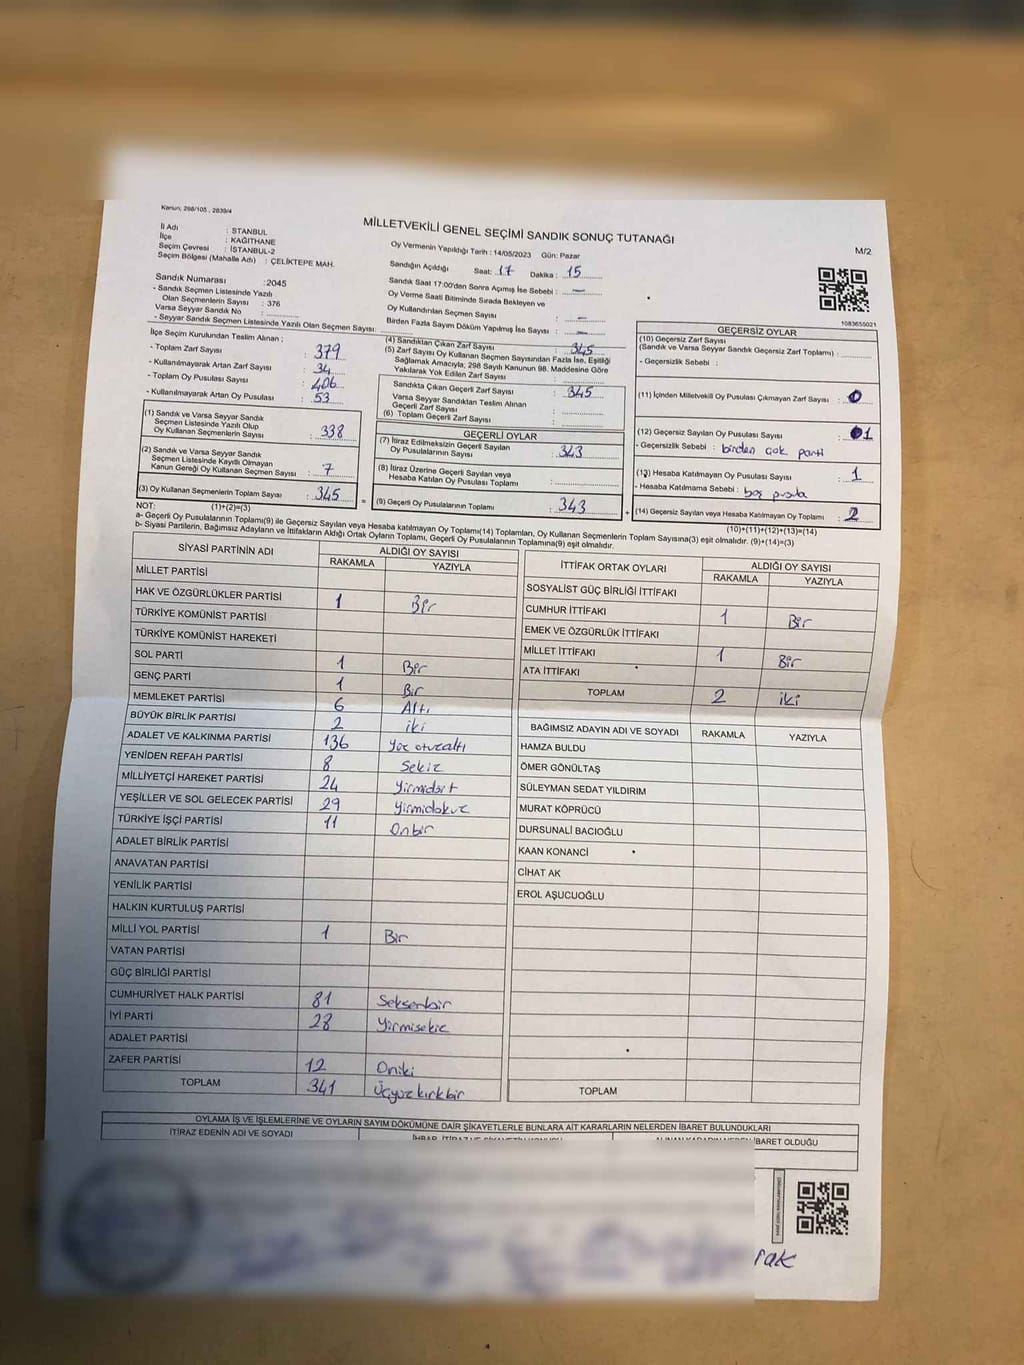 Kanun; 298/105 , 2839/4
MİLLETVEKİLİ GENEL SEÇİMİ SANDIK SONUÇ TUTANAĞI
M/2
İl Adı : STANBUL
İlçe : KAĞITHANE
Seçim Çevresi : İSTANBUL-2
Seçim Bölgesi (Mahalle Adı) : ÇELİKTEPE MAH.
Sandık Numarası :2045
- Sandık Seçmen Listesinde Yazılı
Olan Seçmenlerin Sayısı : 376
Varsa Seyyar Sandık No :
- Seyyar Sandık Seçmen Listesinde Yazılı Olan Seçmen Sayısı:
Oy Vermenin Yapıldığı Tarih : 14/05/2023 Gün: Pazar
Sandığın Açıldığı Saat: 17 Dakika : 15
Sandık Saat 17:00'den Sonra Açılmış İse Sebebi : –
Oy Verme Saati Bitiminde Sırada Bekleyen ve
Oy Kullandırılan Seçmen Sayısı : –
Birden Fazla Sayım Döküm Yapılmış İse Sayısı : –
1083655021
İlçe Seçim Kurulundan Teslim Alınan ;
- Toplam Zarf Sayısı : 379
- Kullanılmayarak Artan Zarf Sayısı : 34
- Toplam Oy Pusulası Sayısı : 406
- Kullanılmayarak Artan Oy Pusulası : 53
(1) Sandık ve Varsa Seyyar Sandık
Seçmen Listesinde Yazılı Olup
Oy Kullanan Seçmenlerin Sayısı : 338
(2) Sandık ve Varsa Seyyar Sandık
Seçmen Listesinde Kayıtlı Olmayan
Kanun Gereği Oy Kullanan Seçmen Sayısı : 7
(3) Oy Kullanan Seçmenlerin Toplam Sayısı : 345
(1)+(2)=(3)
(4) Sandıktan Çıkan Zarf Sayısı : 345
(5) Zarf Sayısı Oy Kullanan Seçmen Sayısından Fazla İse, Eşitliği
Sağlamak Amacıyla, 298 Sayılı Kanunun 98. Maddesine Göre
Yakılarak Yok Edilen Zarf Sayısı :
Sandıkta Çıkan Geçerli Zarf Sayısı : 345
Varsa Seyyar Sandıktan Teslim Alınan
Geçerli Zarf Sayısı :
(6) Toplam Geçerli Zarf Sayısı :
GEÇERLİ OYLAR
(7) İtiraz Edilmeksizin Geçerli Sayılan
Oy Pusulalarının Sayısı : 343
(8) İtiraz Üzerine Geçerli Sayılan veya
Hesaba Katılan Oy Pusulası Toplamı :
(9) Geçerli Oy Pusulalarının Toplamı : 343
GEÇERSİZ OYLAR
(10) Geçersiz Zarf Sayısı
(Sandık ve Varsa Seyyar Sandık Geçersiz Zarf Toplamı) :
- Geçersizlik Sebebi :
(11) İçinden Milletvekili Oy Pusulası Çıkmayan Zarf Sayısı : 0
(12) Geçersiz Sayılan Oy Pusulası Sayısı : 01
- Geçersizlik Sebebi : birden çok parti
(13) Hesaba Katılmayan Oy Pusulası Sayısı : 1
- Hesaba Katılmama Sebebi : boş pusula
(14) Geçersiz Sayılan veya Hesaba Katılmayan Oy Toplamı : 2
(10)+(11)+(12)+(13)=(14)
NOT:
a- Geçerli Oy Pusulalarının Toplamı(9) ile Geçersiz Sayılan veya Hesaba katılmayan Oy Toplamı(14) Toplamları, Oy Kullanan Seçmenlerin Toplam Sayısına(3) eşit olmalıdır. (9)+(14)=(3)
b- Siyasi Partilerin, Bağımsız Adayların ve İttifakların Aldığı Ortak Oyların Toplamı, Geçerli Oy Pusulalarının Toplamına(9) eşit olmalıdır.
SİYASİ PARTİNİN ADI ALDIĞI OY SAYISI
RAKAMLA YAZIYLA
MİLLET PARTİSİ
HAK VE ÖZGÜRLÜKLER PARTİSİ 1 Bir
TÜRKİYE KOMÜNİST PARTİSİ
TÜRKİYE KOMÜNİST HAREKETİ
SOL PARTİ 1 Bir
GENÇ PARTİ 1 Bir
MEMLEKET PARTİSİ 6 Altı
BÜYÜK BİRLİK PARTİSİ 2 iki
ADALET VE KALKINMA PARTİSİ 136 Yüz otuzaltı
YENİDEN REFAH PARTİSİ 8 Sekiz
MİLLİYETÇİ HAREKET PARTİSİ 24 Yirmidört
YEŞİLLER VE SOL GELECEK PARTİSİ 29 Yirmidokuz
TÜRKİYE İŞÇİ PARTİSİ 11 Onbir
ADALET BİRLİK PARTİSİ
ANAVATAN PARTİSİ
YENİLİK PARTİSİ
HALKIN KURTULUŞ PARTİSİ
MİLLİ YOL PARTİSİ 1 Bir
VATAN PARTİSİ
GÜÇ BİRLİĞİ PARTİSİ
CUMHURİYET HALK PARTİSİ 81 Seksenbir
İYİ PARTİ 28 Yirmisekiz
ADALET PARTİSİ
ZAFER PARTİSİ 12 Oniki
TOPLAM 341 Üçyüzkırkbir
İTTİFAK ORTAK OYLARI ALDIĞI OY SAYISI
RAKAMLA YAZIYLA
SOSYALİST GÜÇ BİRLİĞİ İTTİFAKI
CUMHUR İTTİFAKI 1 Bir
EMEK VE ÖZGÜRLÜK İTTİFAKI
MİLLET İTTİFAKI 1 Bir
ATA İTTİFAKI
TOPLAM 2 iki
BAĞIMSIZ ADAYIN ADI VE SOYADI RAKAMLA YAZIYLA
HAMZA BULDU
ÖMER GÖNÜLTAŞ
SÜLEYMAN SEDAT YILDIRIM
MURAT KÖPRÜCÜ
DURSUNALİ BACIOĞLU
KAAN KONANCİ
CİHAT AK
EROL AŞUCUOĞLU
TOPLAM
OYLAMA İŞ VE İŞLEMLERİNE VE OYLARIN SAYIM DÖKÜMÜNE DAİR ŞİKAYETLERLE BUNLARA AİT KARARLARIN NELERDEN İBARET BULUNDUKLARI
İTİRAZ EDENİN ADI VE SOYADI
İBARET OLDUĞU
rak